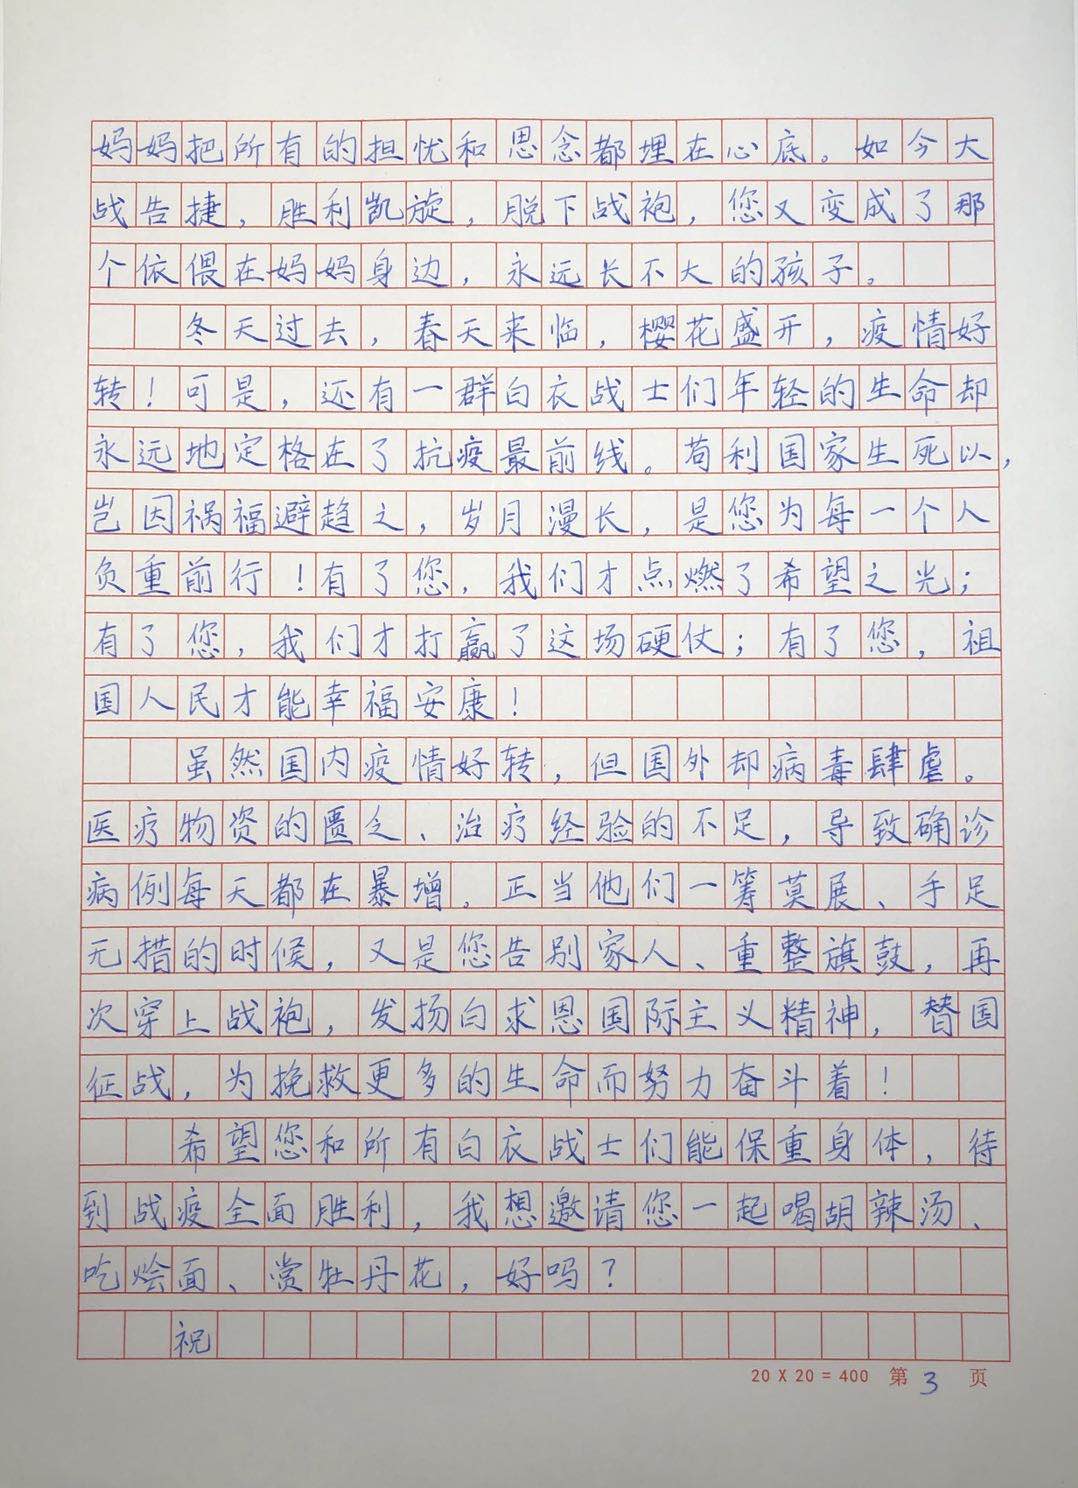 妈妈把所有的担忧和思念都埋在心底。如今大
战告捷，胜利凯旋，脱下战袍，您又变成了那
个依偎在妈妈身边，永远长不大的孩子。
冬天过去，春天来临，樱花盛开，疫情好
转！可是，还有一群白衣战士们年轻的生命却
永远地定格在了抗疫最前线。苟利国家生死以，
岂因祸福避趋之，岁月漫长，是您为每一个人
负重前行！有了您，我们才点燃了希望之光；
有了您，我们才打赢了这场硬仗；有了您，祖
国人民才能幸福安康！
虽然国内疫情好转，但国外却病毒肆虐。
医疗物资的匮乏、治疗经验的不足，导致确诊
病例每天都在暴增，正当他们一筹莫展、手足
无措的时候，又是您告别家人、重整旗鼓，再
次穿上战袍，发扬白求恩国际主义精神，替国
征战，为挽救更多的生命而努力奋斗着！
希望您和所有白衣战士们能保重身体，待
到战疫全面胜利，我想邀请您一起喝胡辣汤、
吃烩面、赏牡丹花，好吗？
祝
20 X 20 = 400 第 3 页